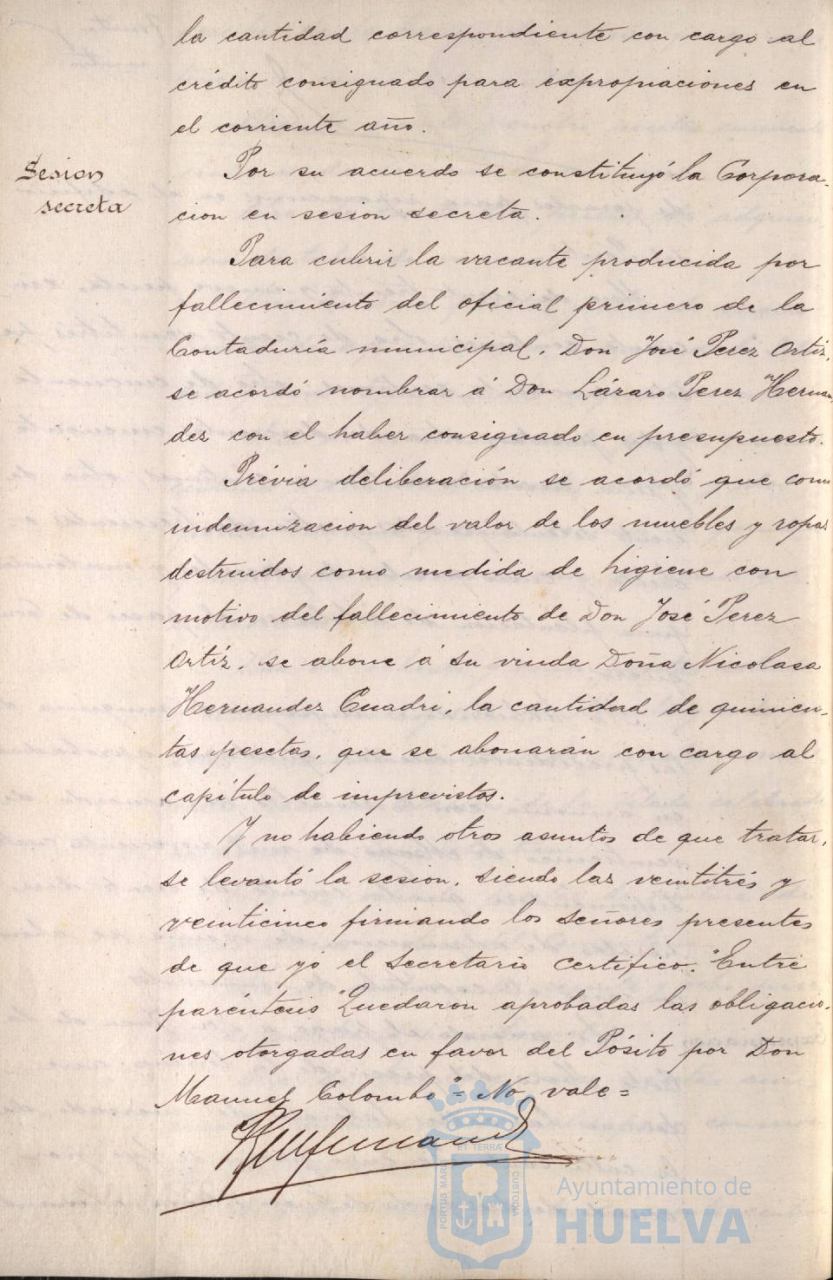 la cantidad correspondiente con cargo al
crédito consignado para expropiaciones en
el corriente año.
Sesion
secreta
Por su acuerdo se constituyó la Corpora-
cion en sesion secreta.
Para cubrir la vacante producida por
fallecimiento del oficial primero de la
Contaduría municipal, Don José Perez Ortíz,
se acordó nombrar á Don Lázaro Perez Hernan-
dez con el haber consignado en presupuesto.
Prévia deliberación se acordó que como
indemnizacion del valor de los muebles y ropas
destruidos como medida de higiene con
motivo del fallecimiento de Don José Perez
Ortíz, se abone á su viuda Doña Nicolasa
Hernandez Cuadri, la cantidad de quinien-
tas pesetas, que se abonarán con cargo al
capítulo de imprevistos.
Y no habiendo otros asuntos de que tratar,
se levantó la sesion, siendo las veintitrés y
veinticinco firmando los señores presentes
de que yó el Secretario certifico. "Entre
paréntesis "Quedaron aprobadas las obligacio-
nes otorgadas en favor del Pósito por Don
Manuel Colombo" = No vale =
PORTUS MARIS
ET TERRÆ
CUSTODIA
Ayuntamiento de
HUELVA